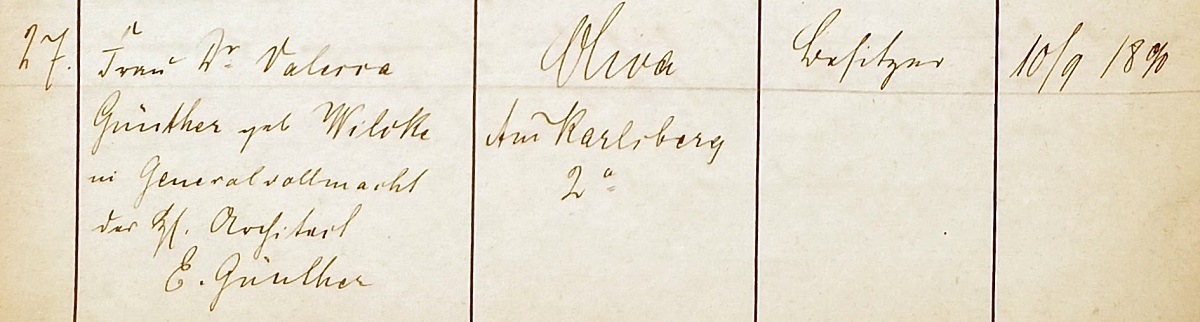 27. Frau Dr. Valesca Oliva Besitzer 10/9 1890
Günther geb Wilcke Am Karlsberg
in Generalvollmacht 2a
der H. Architect
E. Günther